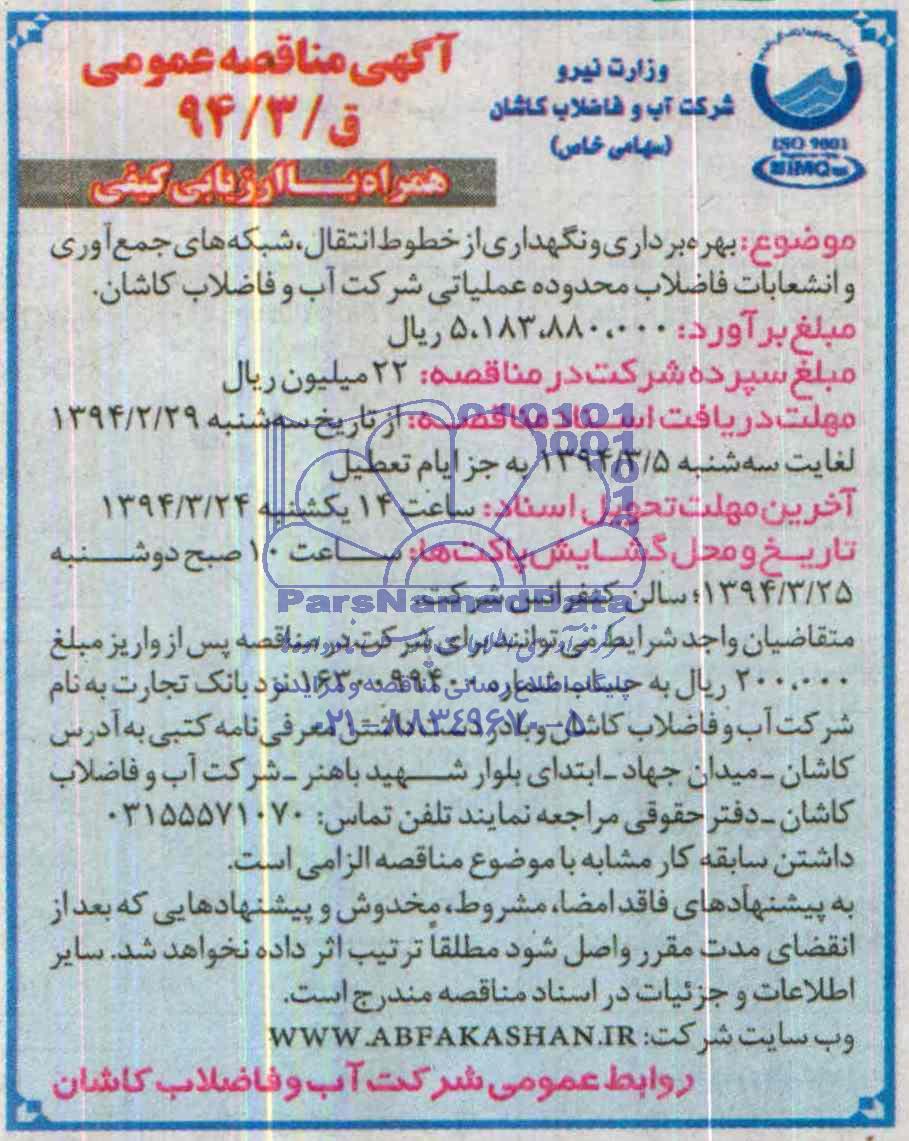 وزارت نیرو
شرکت آب و فاضلاب کاشان
(سهامی خاص)
ISO 9001
IMQ
آگهی مناقصه عمومی
ق/۹۴/۳
همراه با ارزیابی کیفی
موضوع: بهره‌برداری و نگهداری از خطوط انتقال، شبکه‌های جمع‌آوری
و انشعابات فاضلاب محدوده عملیاتی شرکت آب و فاضلاب کاشان.
مبلغ برآورد: ۵،۱۸۳،۸۸۰،۰۰۰ ریال
مبلغ سپرده شرکت در مناقصه: ۲۲ میلیون ریال
مهلت دریافت اسناد مناقصه: از تاریخ سه‌شنبه ۱۳۹۴/۲/۲۹
لغایت سه‌شنبه ۱۳۹۴/۳/۵ به جز ایام تعطیل
آخرین مهلت تحویل اسناد: ساعت ۱۴ یکشنبه ۱۳۹۴/۳/۲۴
تاریخ و محل گشایش پاکت‌ها: ساعت ۱۰ صبح دوشنبه
۱۳۹۴/۳/۲۵؛ سالن کنفرانس شرکت.
ParsNamadData
متقاضیان واجد شرایط می‌توانند برای شرکت در مناقصه پس از واریز مبلغ
۲۰۰،۰۰۰ ریال به حساب شماره نزد بانک تجارت به نام
پایگاه اطلاع رسانی مناقصه و مزایده
شرکت آب و فاضلاب کاشان و با در دست داشتن معرفی‌نامه کتبی به آدرس
۰۲۱-۸۸۳۴۹۶۷۰-۵
کاشان ـ میدان جهاد ـ ابتدای بلوار شهید باهنر ـ شرکت آب و فاضلاب
کاشان ـ دفتر حقوقی مراجعه نمایند تلفن تماس: ۰۳۱۵۵۵۷۱۰۷۰
داشتن سابقه کار مشابه با موضوع مناقصه الزامی است.
به پیشنهادهای فاقد امضا، مشروط، مخدوش و پیشنهادهایی که بعد از
انقضای مدت مقرر واصل شود مطلقاً ترتیب اثر داده نخواهد شد. سایر
اطلاعات و جزئیات در اسناد مناقصه مندرج است.
وب سایت شرکت: WWW.ABFAKASHAN.IR
روابط عمومی شرکت آب و فاضلاب کاشان